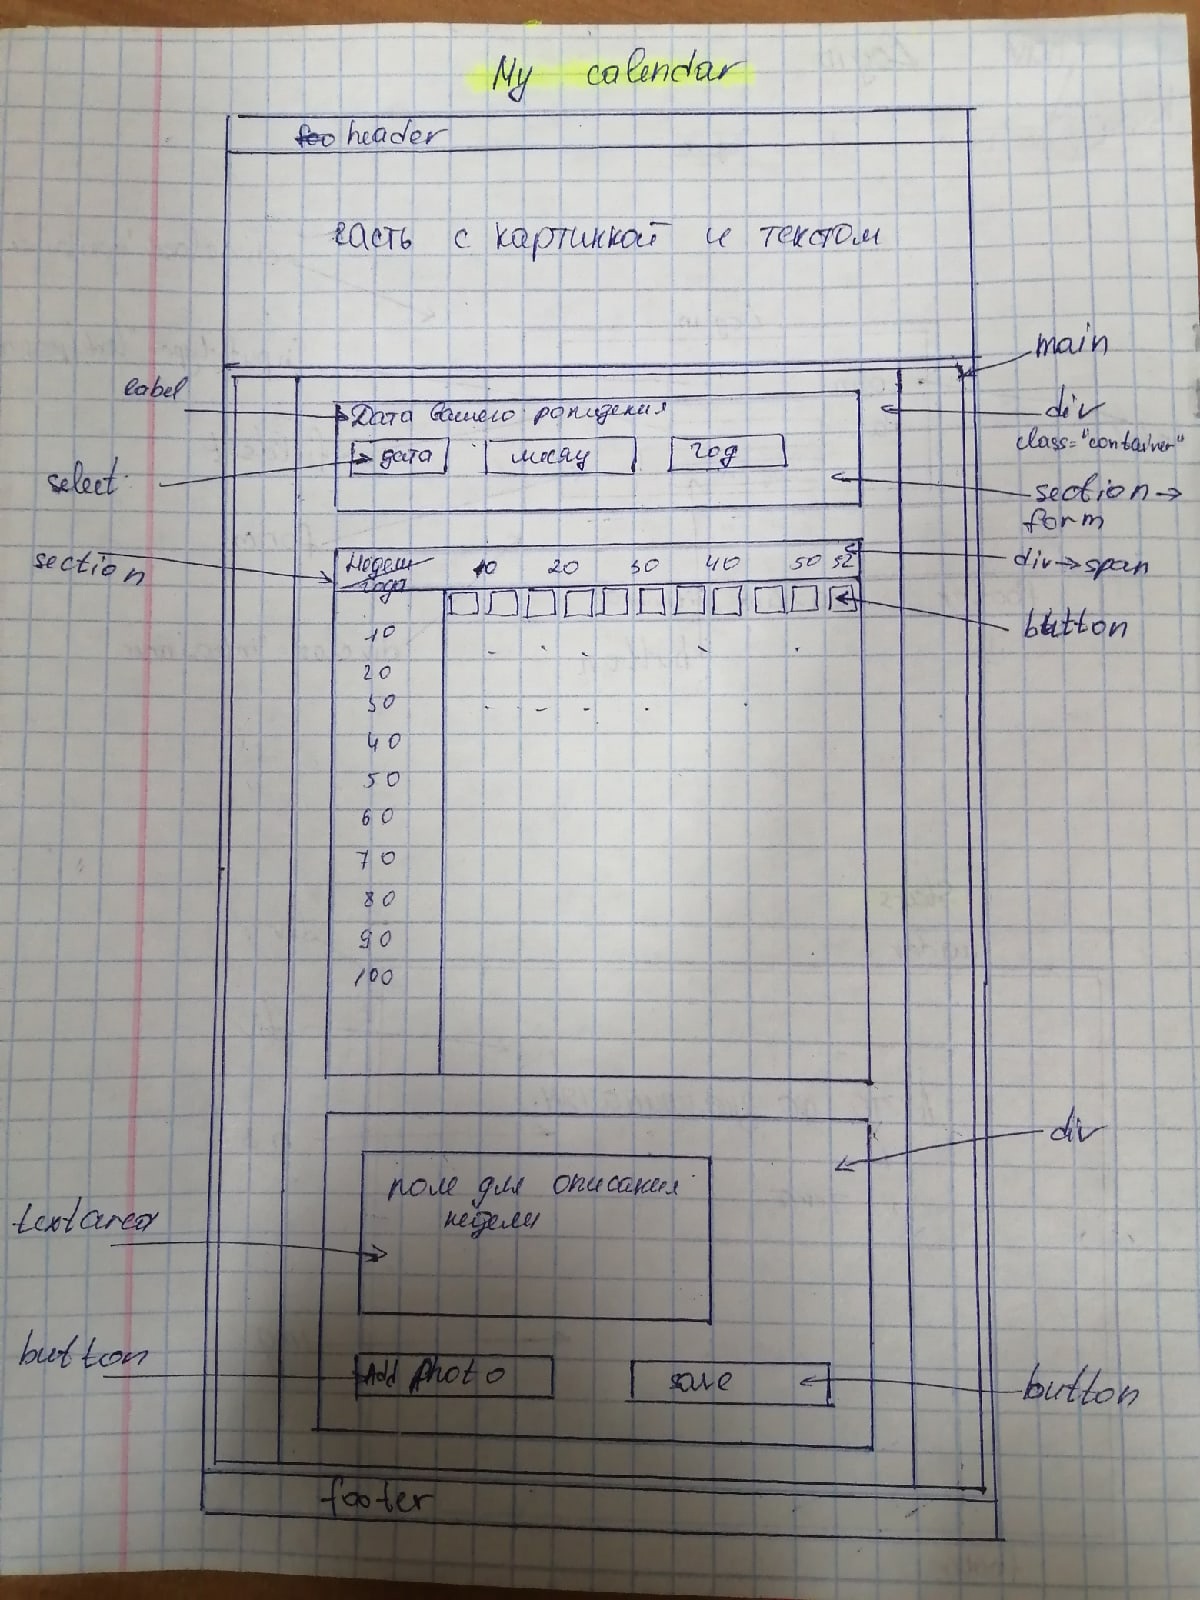 My calendar
header
часть с картинкой и текстом
main
label
Дата вашего рождения
div
class="container"
дата
месяц
год
select
section →
form
section
Недели
года
10 20 30 40 50 52
div → span
button
10
20
30
40
50
60
70
80
90
100
div
поле для описания
недели
textarea
button
Add photo
save
button
footer